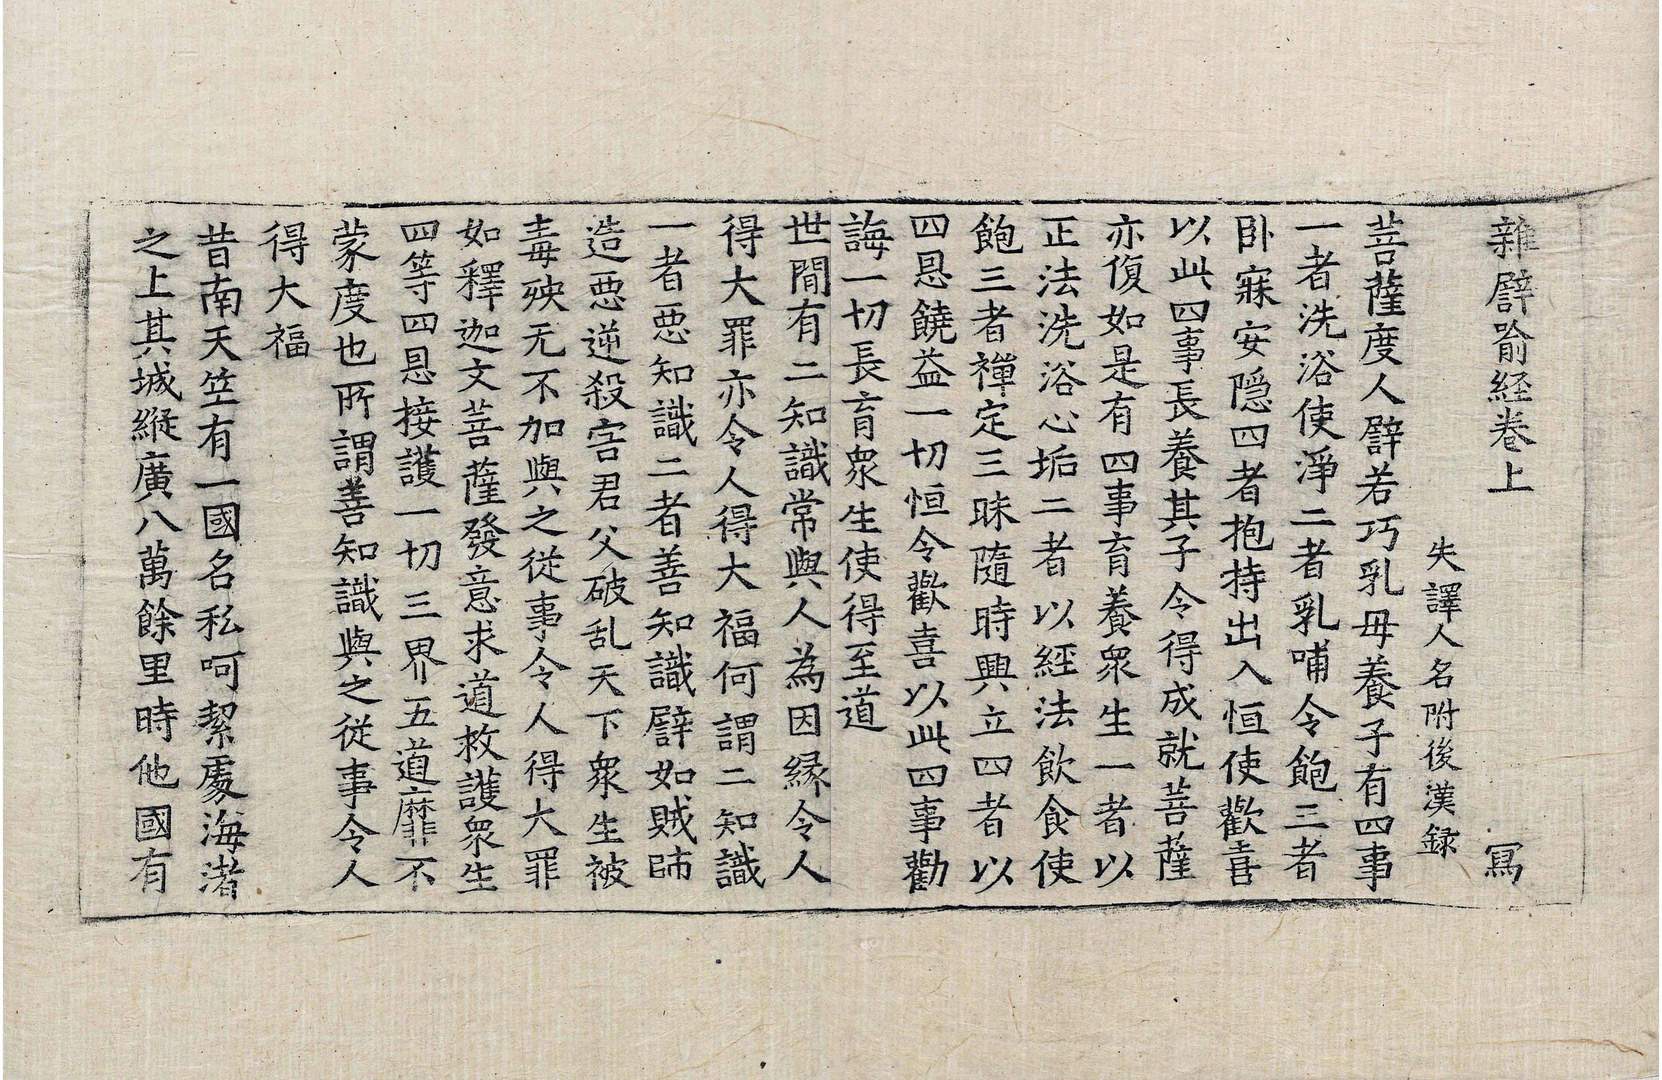 雜譬喻経卷上 寫
失譯人名附後漢録
菩薩度人譬若巧乳母養子有四事
一者洗浴使淨二者乳哺令飽三者
卧寐安隱四者抱持出入恒使歡喜
以此四事長養其子令得成就菩薩
亦復如是有四事育養衆生一者以
正法洗浴心垢二者以經法飲食使
飽三者禪定三昧隨時興立四者以
四恩饒益一切恒令歡喜以此四事勸
誨一切長育衆生使得至道
世間有二知識常與人為因緣令人
得大罪亦令人得大福何謂二知識
一者惡知識二者善知識譬如賊師
造惡逆殺害君父破乱天下衆生被
毒殃无不加與之従事令人得大罪
如釋迦文菩薩發意求道救護衆生
四等四恩接護一切三界五道靡不
蒙度也所謂善知識與之従事令人
得大福
昔南天竺有一國名私呵絜處海渚
之上其城縱廣八萬餘里時他國有